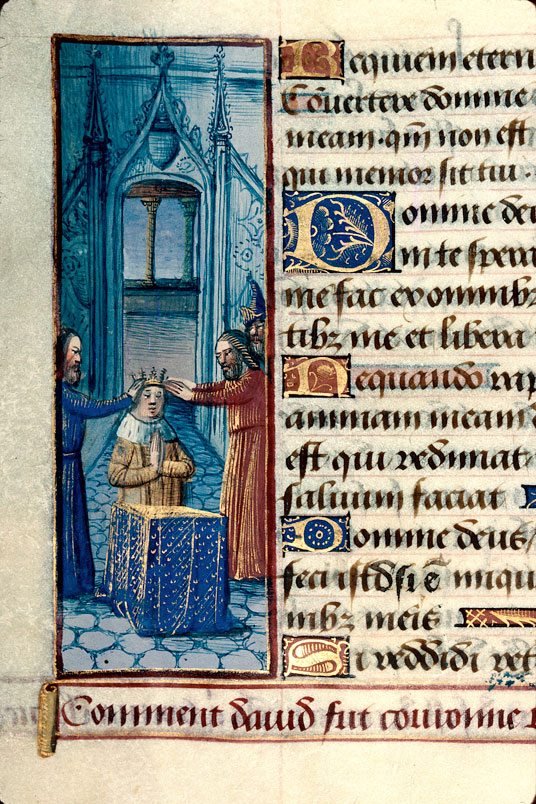 Requiem etern
Co̅vertere domine
meam. qm̅ non est
qui memor sit tui.
Domine de
in te spera
me fac ex omnibꝫ
tibꝫ me et libera
Nequando rap
animam meam
est qui redimat
saluum faciat
Domine deus
feci istd si e̅ iniqui
nibꝫ meis
Si reddidi ret
Comment dauid fut couronne